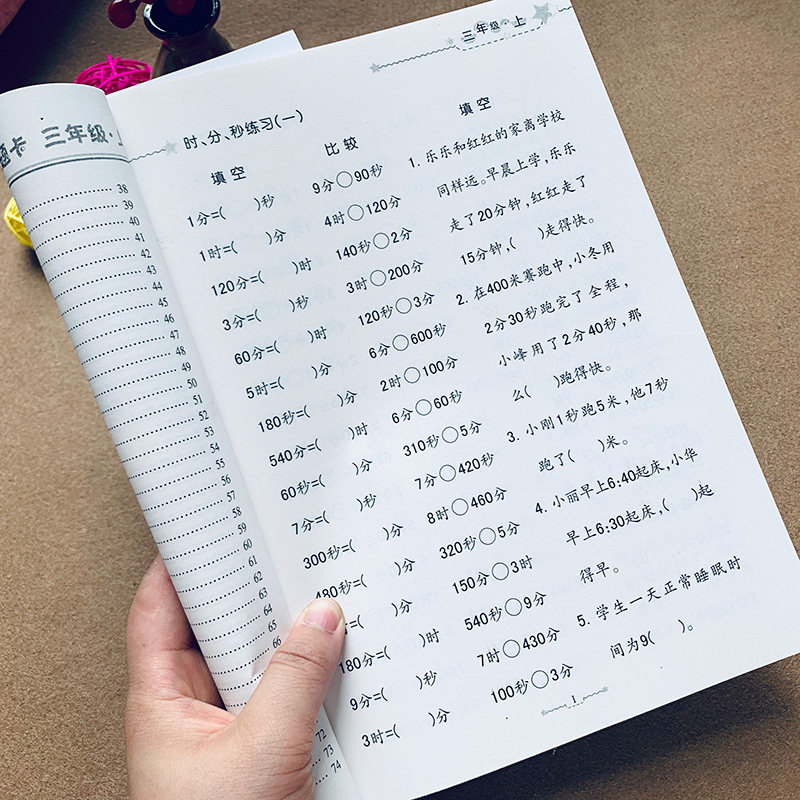 题卡 三年级·上
38
39
40
41
42
43
44
45
46
47
48
49
50
51
52
53
54
55
56
57
58
59
60
61
62
63
64
65
66
72
73
74
三年级·上
时、分、秒练习(一)
填空
1分=( )秒
1时=( )分
120分=( )时
3分=( )秒
60分=( )时
5时=( )分
180秒=( )分
540分=( )时
60秒=( )分
7分=( )秒
300秒=( )分
480秒=( )分
( )分
180分=( )时
9分=( )秒
3时=( )分
比较
9分○90秒
4时○120分
140秒○2分
3时○200分
120秒○3分
6分○600秒
2时○100分
6分○60秒
310秒○5分
7分○420秒
8时○460分
320秒○5分
150分○3时
540秒○9分
7时○430分
100秒○3分
填空
1. 乐乐和红红的家离学校
同样远。早晨上学,乐乐
走了20分钟,红红走了
15分钟,( )走得快。
2. 在400米赛跑中,小冬用
2分30秒跑完了全程,
小峰用了2分40秒,那
么( )跑得快。
3. 小刚1秒跑5米,他7秒
跑了( )米。
4. 小丽早上6:40起床,小华
早上6:30起床,( )起
得早。
5. 学生一天正常睡眠时
间为9( )。
1